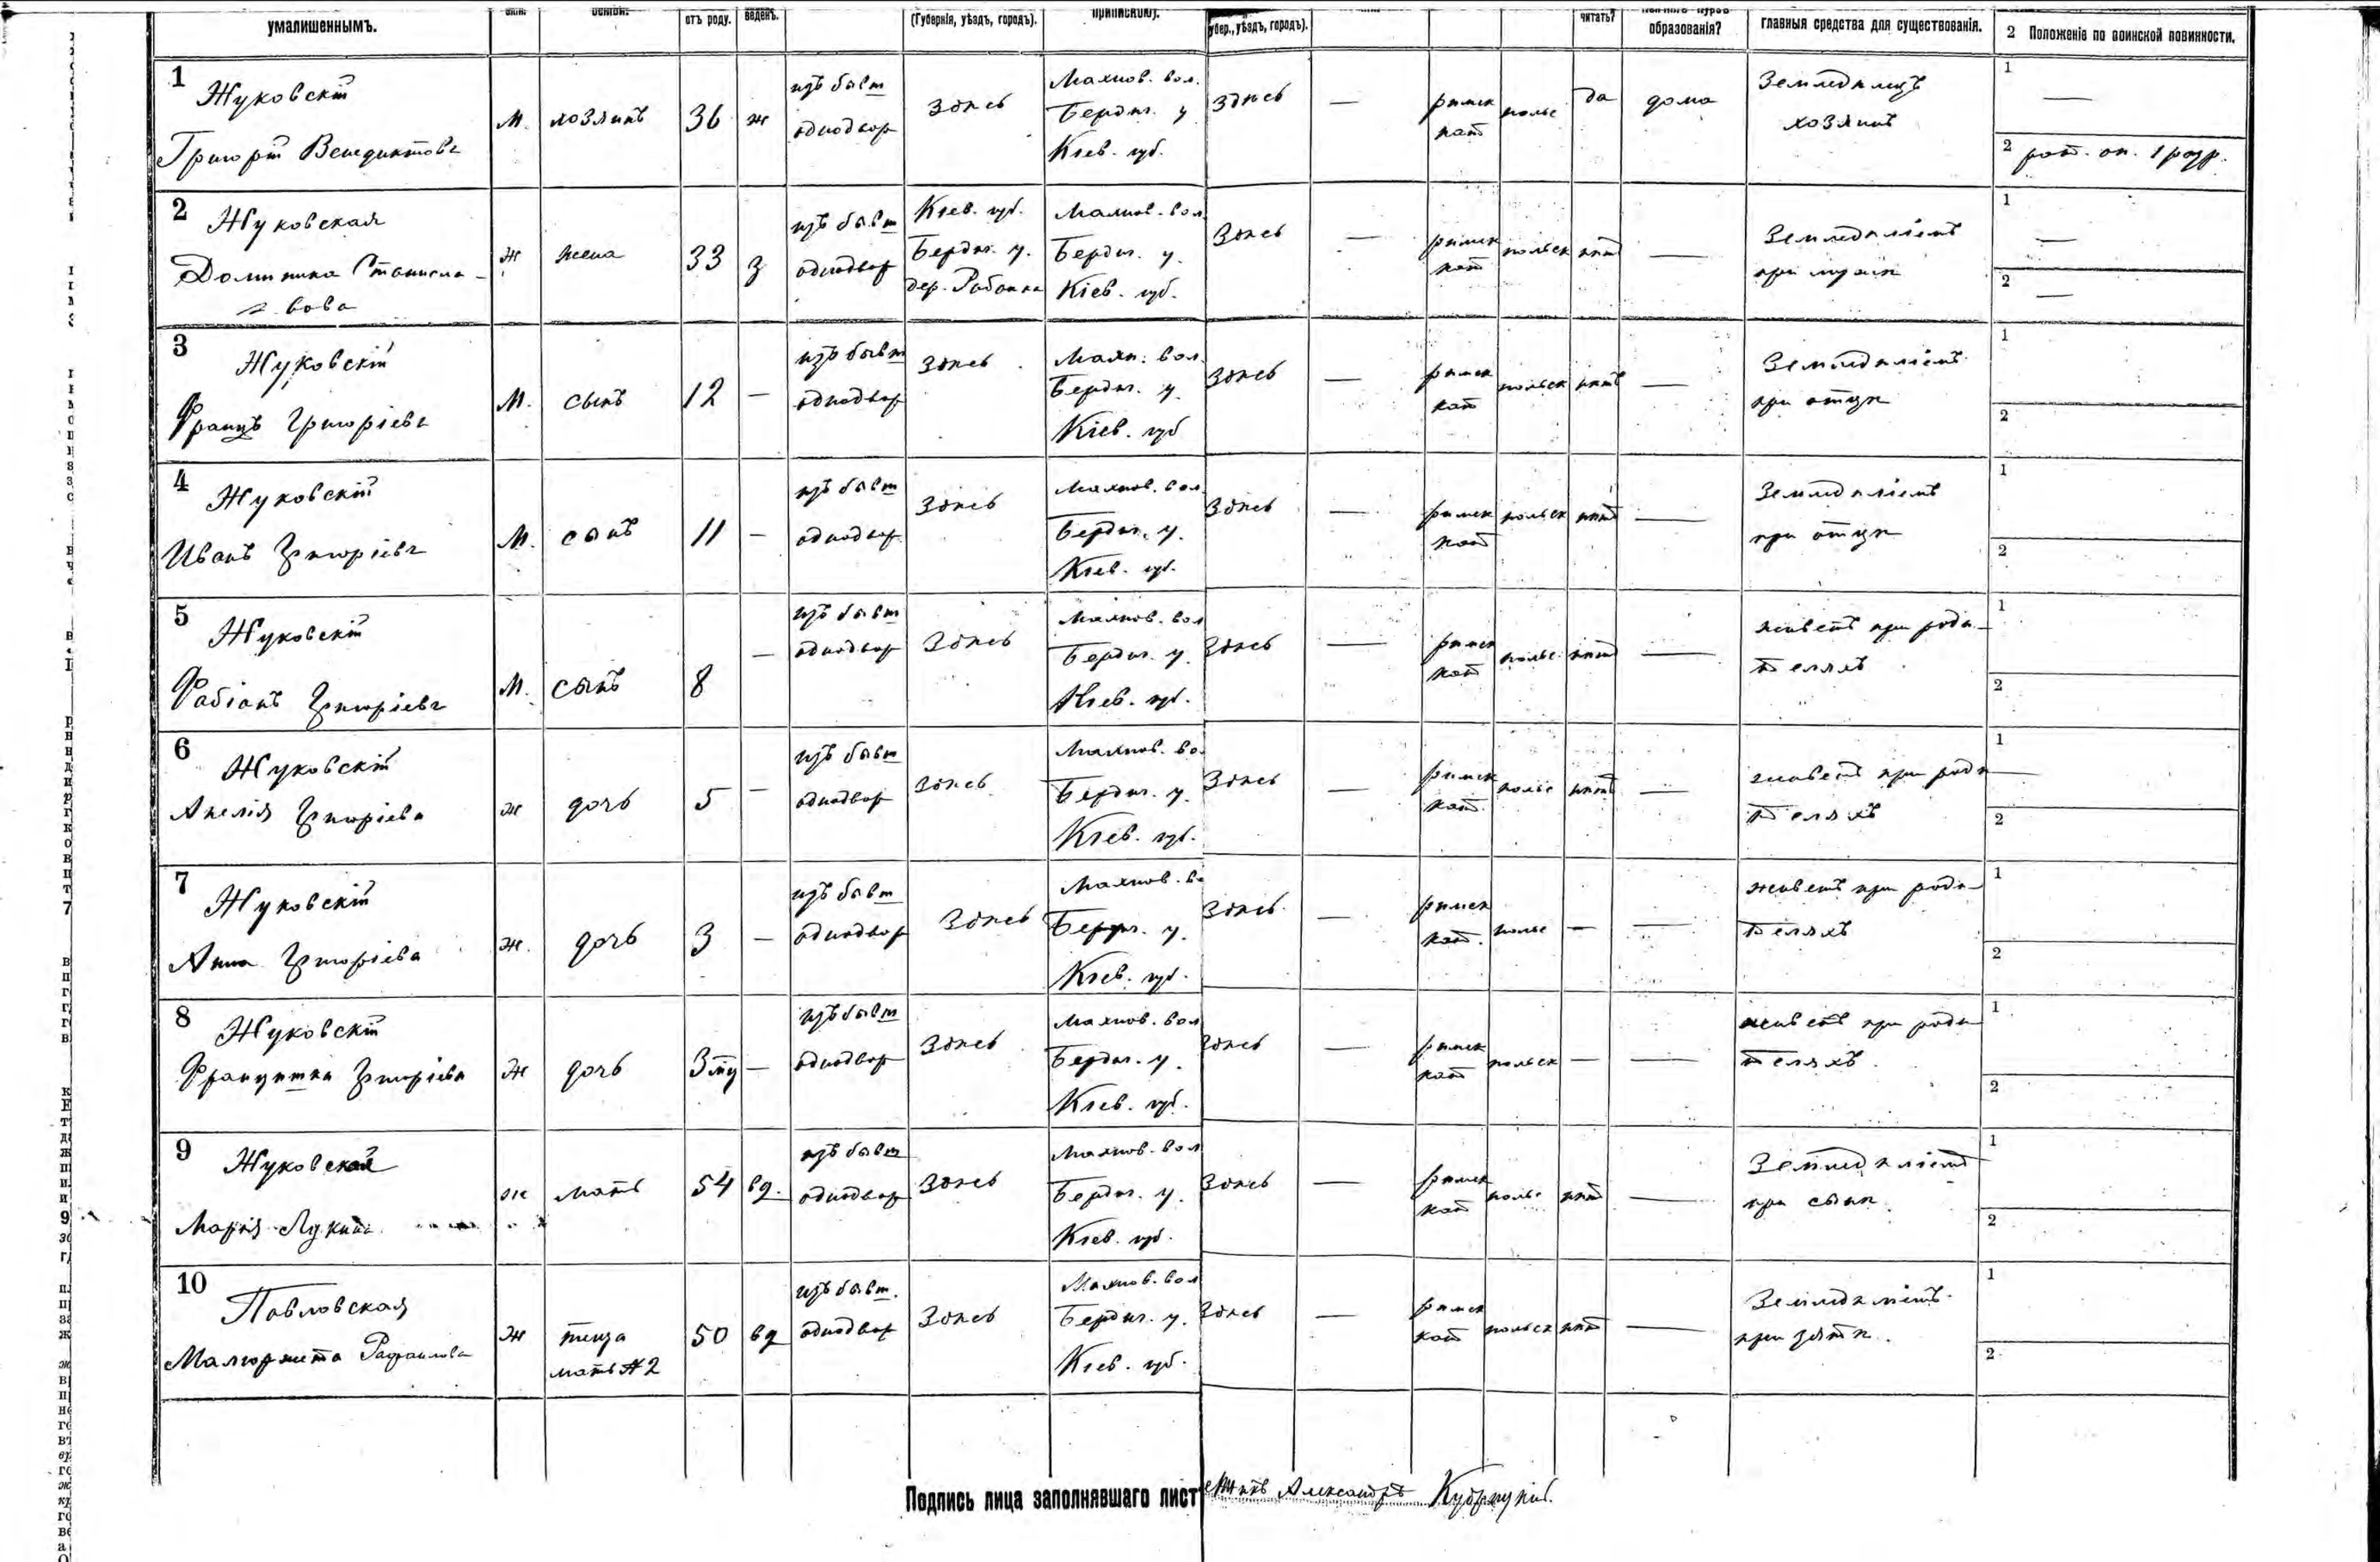 умалишеннымъ.
отъ роду.
веденъ.
(Губернія, уѣздъ, городъ).
припискою).
губер., уѣздъ, городъ).
читать?
образованія?
главныя средства для существованія.
2 Положеніе по воинской повинности.
1 Жуковскій
Григорій Венедиктовъ
м. хозяинъ 36 ж
изъ бывш
однодвор
здѣсь
Махнов. вол.
Бердич. у
Кіев. губ.
здѣсь —
римск
кат
польс да дома
Земледѣлецъ
хозяинъ
1 —
2 рат. оп. 1 разр.
2 Жуковская
Доминика Станисла-
вова
ж жена 33 з
изъ бывш
однодвор
Кіев. губ.
Бердич. у.
дер.
Махнов. вол.
Бердич. у.
Кіев. губ.
здѣсь —
римск
кат
польск нѣт —
Земледѣліемъ
при мужѣ
1 —
2 —
3 Жуковскій
Францъ Григоріевъ
м. сынъ 12 —
изъ бывш
однодвор
здѣсь
Махн. вол.
Бердич. у.
Кіев. губ
здѣсь —
римск
кат
польск нѣтъ —
Земледѣліемъ
при отцѣ
1
2
4 Жуковскій
Иванъ Григоріевъ
м. сынъ 11 —
изъ бывш
однодвор
здѣсь
Махнов. вол.
Бердич. у.
Кіев. губ.
здѣсь —
римск
кат
польск нѣт —
Земледѣліемъ
при отцѣ
1
2
5 Жуковскій
Фабіанъ Григоріевъ
м. сынъ 8 —
изъ бывш
однодвор
здѣсь
Махнов. вол
Бердич. у.
Кіев. губ.
здѣсь —
римск
кат
польс. нѣт —
живетъ при роди-
теляхъ
1
2
6 Жуковскій
Анелія Григоріева
ж дочь 5 —
изъ бывш
однодвор
здѣсь
Махнов. во.
Бердич. у.
Кіев. губ.
здѣсь —
римск
кат.
польс нѣт —
живетъ при роди-
теляхъ
1
2
7 Жуковскій
Анна Григоріева
ж. дочь 3 —
изъ бывш
однодвор
здѣсь
Махнов. во
Бердич. у.
Кіев. губ.
здѣсь. —
римск
кат.
польс — —
живетъ при роди-
теляхъ
1
2
8 Жуковскій
Ж дочь
изъ бывш
однодвор
здѣсь
Махнов. вол
Бердич. у.
Кіев. губ.
здѣсь —
римск
кат
польск — —
живетъ при роди-
теляхъ.
1
2
9 Жуковская
Марія Лукина
ж мать 54 вд.
изъ бывш
однодвор
здѣсь
Махнов. вол
Бердич. у.
Кіев. губ.
здѣсь —
римск
кат
польс нѣт —
Земледѣліемъ
при сынѣ.
1
2
10 Павловская
Малгоржета Рафаилова
ж теща
мать №2
50 вд
изъ бывш.
однодвор
здѣсь
Махнов. вол
Бердич. у.
Кіев. губ.
здѣсь —
римск
кат
польск нѣт —
Земледѣліемъ.
при зятѣ.
1
2
Подпись лица заполнявшаго лист Александръ